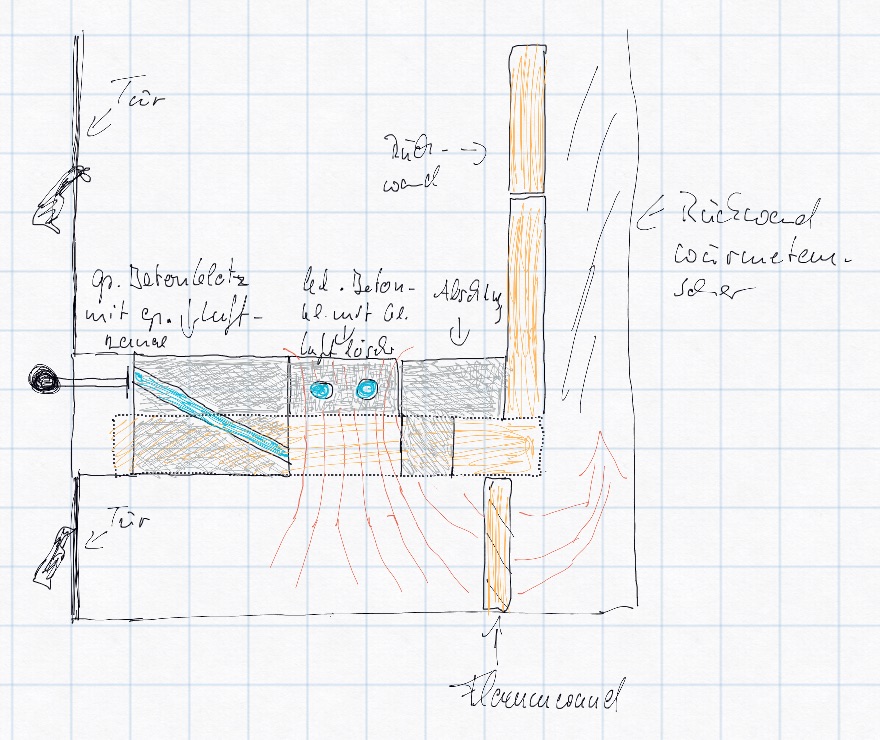 Tür
Rück-
wand
Rückwand
wärmetau-
scher
gr. Betonklotz
mit gr. Luft-
kanal
kl. Beton-
kl. mit kl.
Luftlöcher
Tür
Flammwand